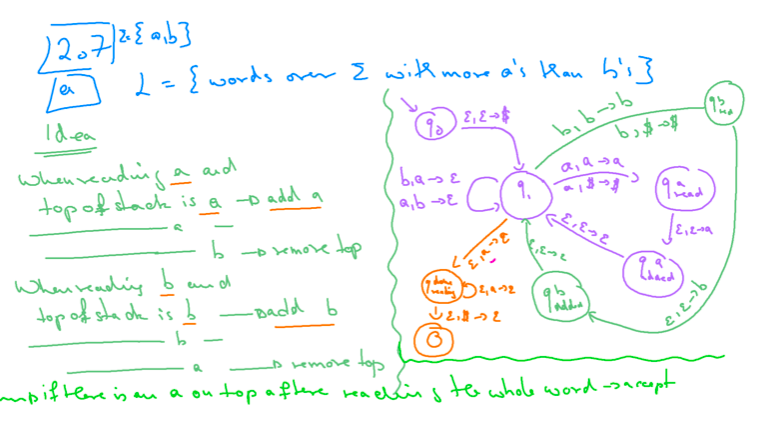 2.7 Σ={a,b}
a L = { words over Σ with more a's than b's }
Idea
When reading a and
top of stack is a → add a
a
b → remove top
When reading b and
top of stack is b → add b
b
a → remove top
if there is an a on top after reading the whole word → accept
q0
ε,ε→$
b,b→b
b,$→$
q b read
b,a→ε
a,b→ε
q1
a,a→a
a,$→$
q a read
ε,ε→a
ε,ε→ε
q a added
ε,a→ε
q done reading
ε,a→ε
ε,ε→ε
q b added
ε,ε→b
ε,$→ε